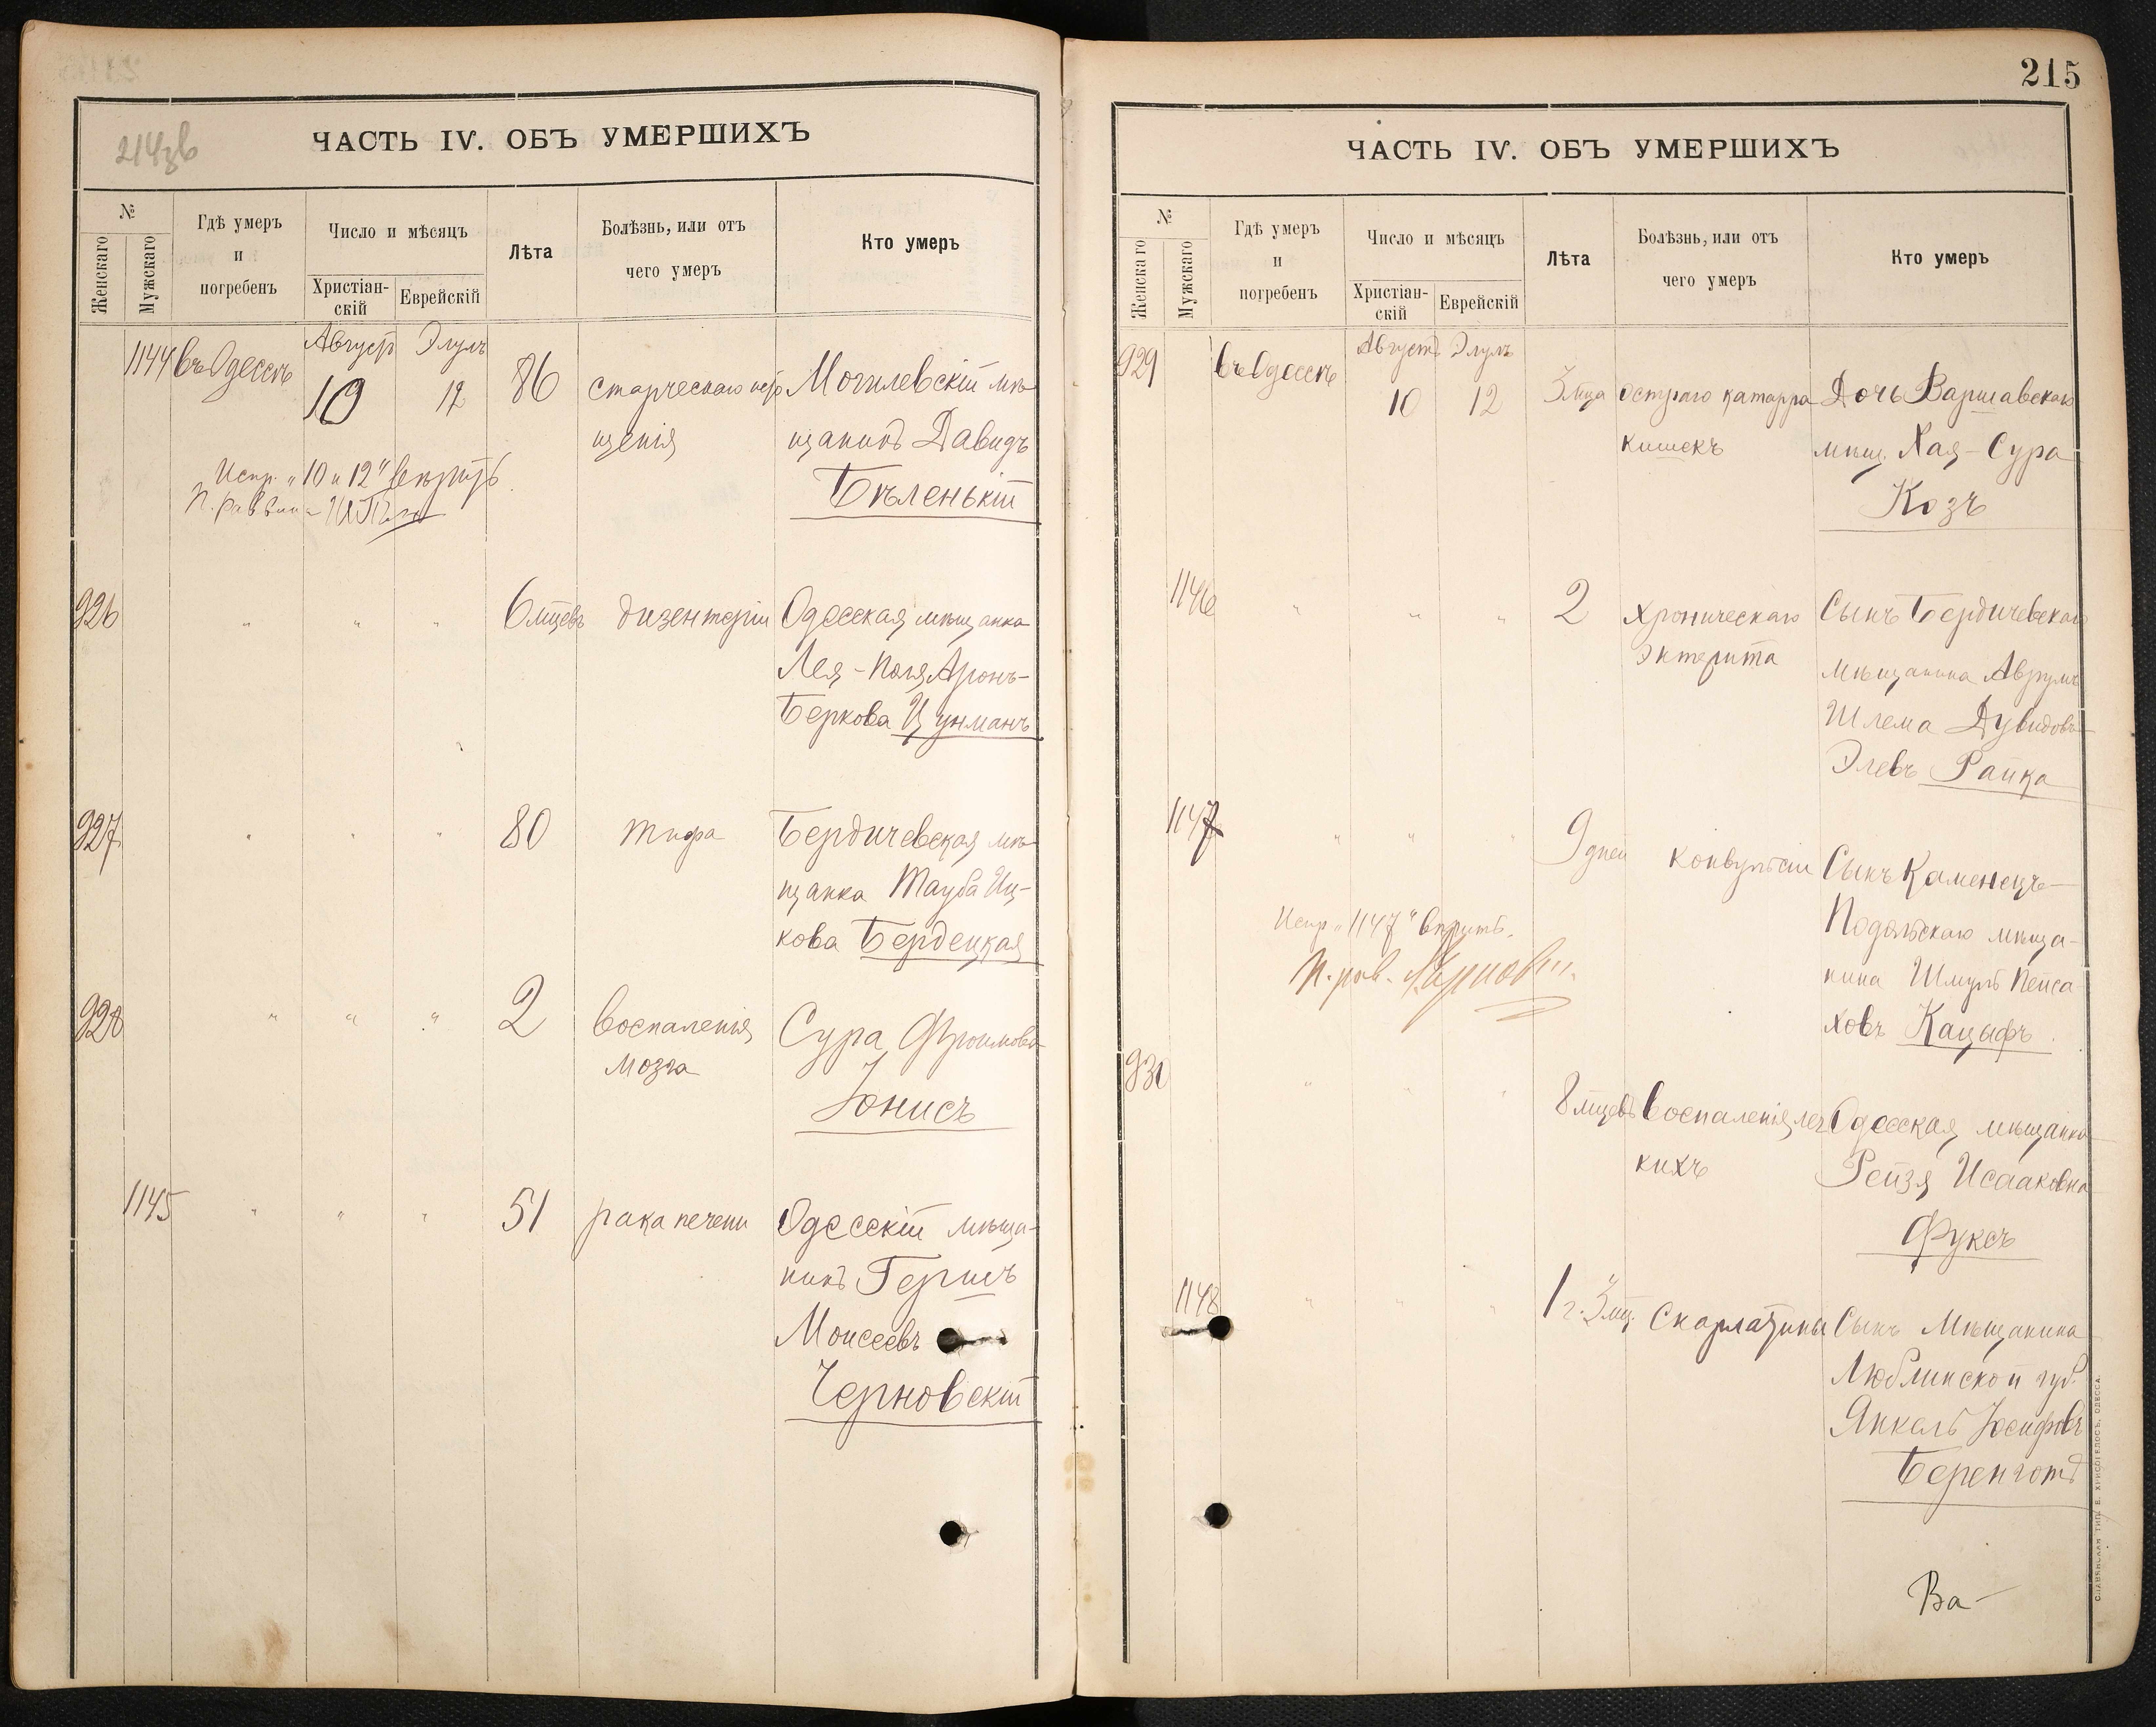 214зв
ЧАСТЬ IV. ОБЪ УМЕРШИХЪ
№
Женскаго
Мужскаго
Гдѣ умеръ
и
погребенъ
Число и мѣсяцъ
Христіан-
скій
Еврейскій
Лѣта
Болѣзнь, или отъ
чего умеръ
Кто умеръ
1144 въ Одессѣ Августъ 10 Элулъ 12 86 старческаго исто
щенія
Могилевскій мѣ-
щанинъ Давидъ
Бѣленькій
Испр. „10 и 12“ вѣрить
П. раввина
926 " " " 6 мцевъ дизентеріи Одесская мѣщанка
Лея-Поля Аронъ-
Беркова Цунманъ
927 " " " 80 тифа Бердичевская мѣ-
щанка Тауба Иц-
кова Бердецкая
928 " " " 2 воспаленія
мозга
Сура Фроимова
Юнисъ
1145 " " " 51 рака печени Одесскій мѣща-
нинъ Гершъ
Моисеевъ
Черновскій
215
ЧАСТЬ IV. ОБЪ УМЕРШИХЪ
№
Женскаго
Мужскаго
Гдѣ умеръ
и
погребенъ
Число и мѣсяцъ
Христіан-
скій
Еврейскій
Лѣта
Болѣзнь, или отъ
чего умеръ
Кто умеръ
929 въ Одессѣ Августъ 10 Элулъ 12 3 мца остраго катарра
кишекъ
Дочь Варшавскаго
мѣщ. Хая-Сура
Козъ
1146 " " " 2 хроническаго
энтерита
Сынъ Бердичевскаго
мѣщанина Аврумъ
Шлема Дувидовъ
Элевъ Райка
1147 " " " 9 дней конвульсіи Сынъ Каменецъ-
Подольскаго мѣща-
нина Шмуль Пейса
ховъ Кацыфъ
Испр. „1147“ вѣрить.
П. рав.
930 " " " 8 мцевъ воспаленія лег
кихъ
Одесская мѣщанка
Рейзя Исааковна
Фуксъ
1148 " " " 1 г. 3 мц. скарлатины Сынъ Мѣщанина
Люблинской губ.
Янкель Іосифовъ
Беренготъ
Ва-
СЛАВЯНСКАЯ ТИП. Е. ХРИСОГЕЛОСЪ, ОДЕССА.